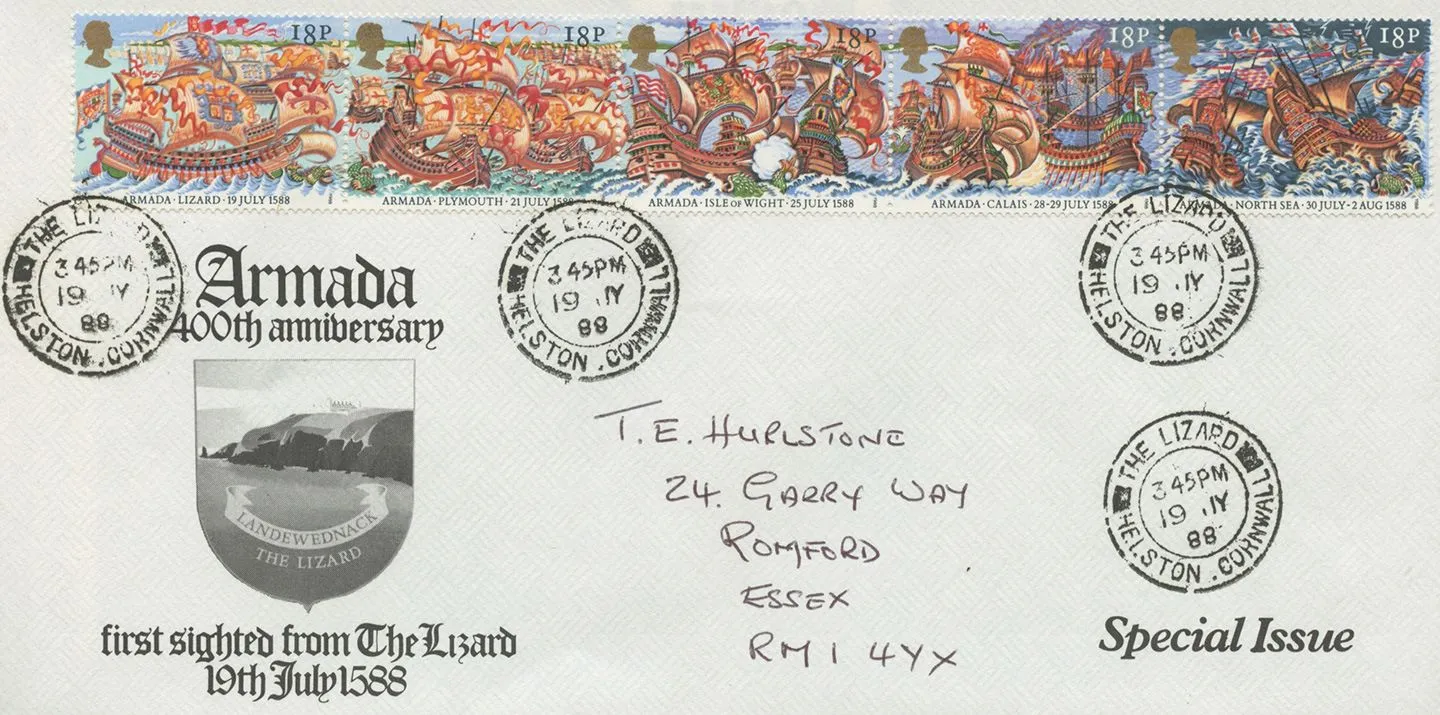 18P
18P
18P
18P
18P
ARMADA · LIZARD · 19 JULY 1588
ARMADA · PLYMOUTH · 21 JULY 1588
ARMADA · ISLE OF WIGHT · 25 JULY 1588
ARMADA · CALAIS · 28-29 JULY 1588
ARMADA · NORTH SEA · 30 JULY - 2 AUG 1588
THE LIZARD
3 45PM
19 JY
88
HELSTON . CORNWALL
THE LIZARD
3 45PM
19 JY
88
HELSTON . CORNWALL
THE LIZARD
3 45PM
19 JY
88
HELSTON . CORNWALL
Armada
400th anniversary
LANDEWEDNACK
THE LIZARD
first sighted from The Lizard
19th July 1588
T. E. HURLSTONE
24. GARRY WAY
ROMFORD
ESSEX
RM1 4YX
THE LIZARD
3 45PM
19 JY
88
HELSTON . CORNWALL
Special Issue